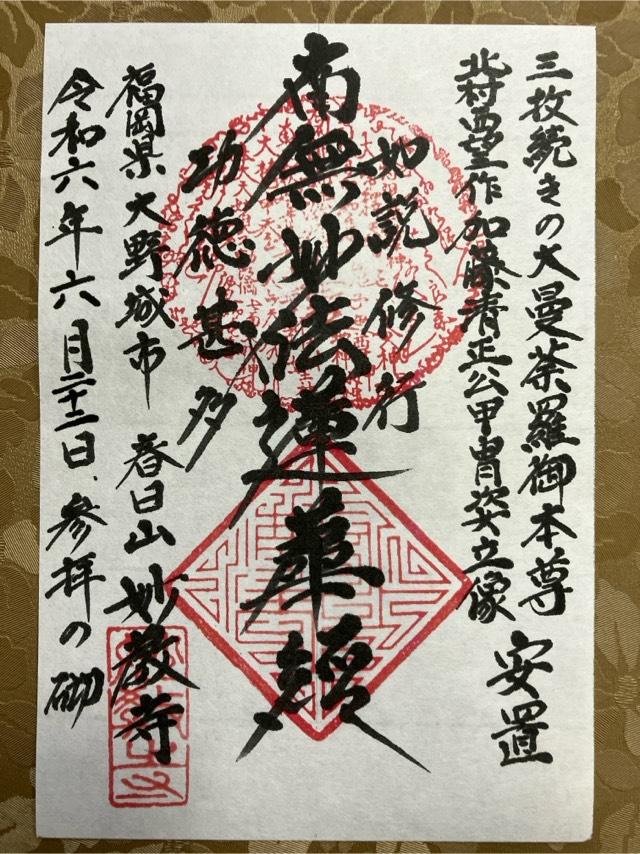 三枚続きの大曼荼羅御本尊
北村西望作加藤清正公甲冑姿立像
安置
如説修行
南無妙法蓮華経
功徳甚多
福岡県大野城市 春日山妙教寺
令和六年六月二十二日、参拝の砌